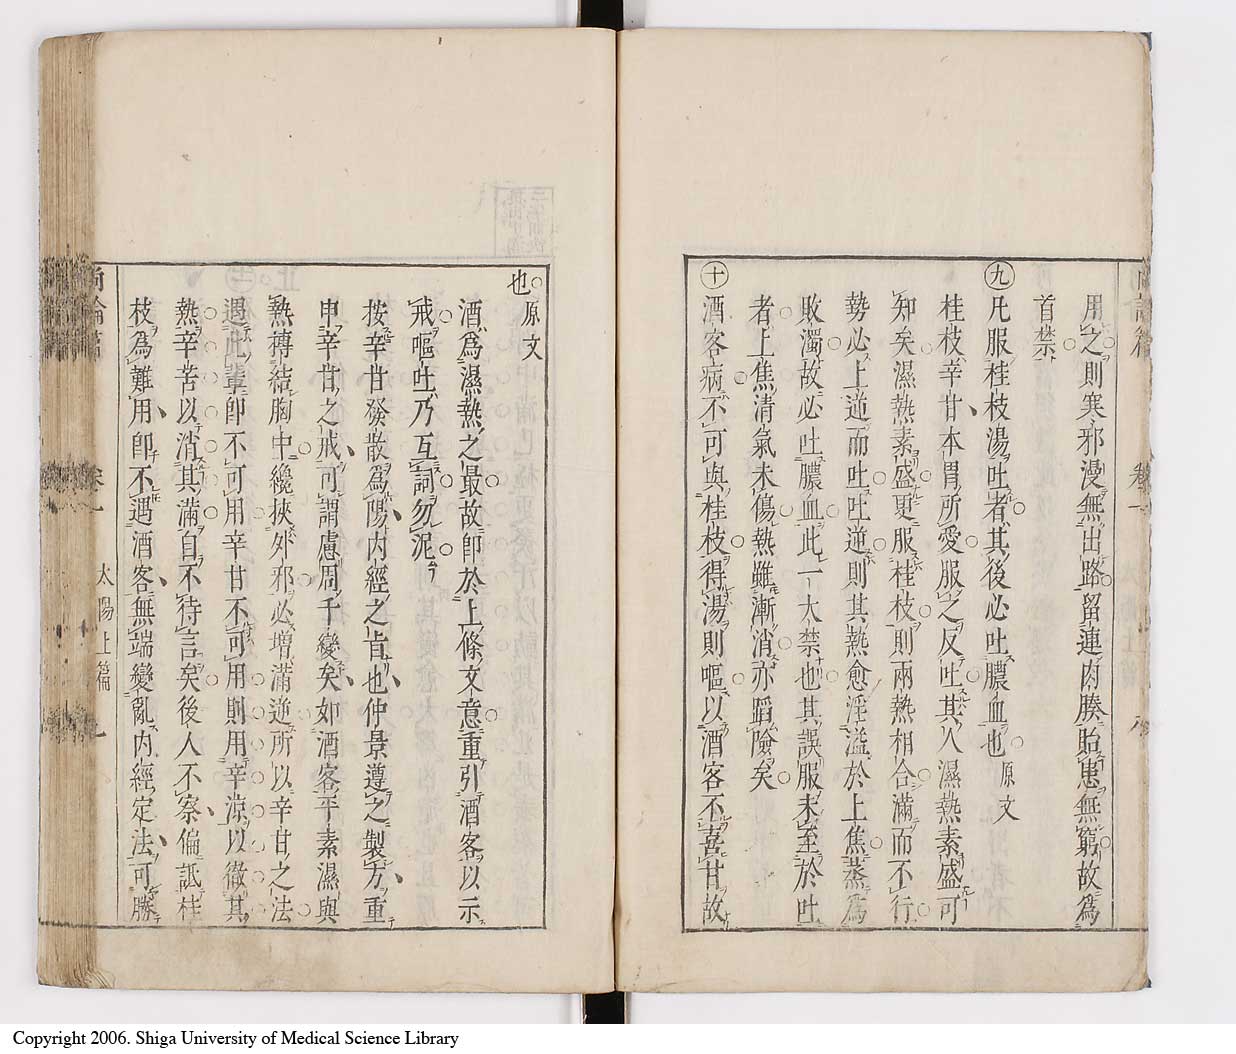 用之則寒邪漫無出路留連肉腠貽患無窮故爲
首禁
九凡服桂枝湯吐者其後必吐膿血也 原文
桂枝辛甘本胃所愛服之反吐其人濕熱素盛可
知矣濕熱素盛更服桂枝則兩熱相合滿而不行
勢必上逆而吐吐逆則其熱愈淫溢於上焦蒸爲
敗濁故必吐膿血此一大禁也其誤服未至於吐
者上焦清氣未傷熱雖漸消亦蹈險矣
十酒客病不可與桂枝得湯則嘔以酒客不喜甘故
也 原文
酒爲濕熱之最故即於上條文意重引酒客以示
戒嘔吐乃互詞勿泥
按辛甘發散爲陽内經之旨也仲景遵之製方重
申辛甘之戒可謂慮周千變矣如酒客平素濕與
熱搏結胸中纔挾外邪必增滿逆所以辛甘之法
遇此輩即不可用辛甘不可用則用辛涼以徹其
熱辛苦以消其滿自不待言矣後人不察偏詆桂
枝爲難用即不遇酒客無端變亂内經定法可勝
尚論篇 卷一 太陽上篇 九
Copyright 2006. Shiga University of Medical Science Library